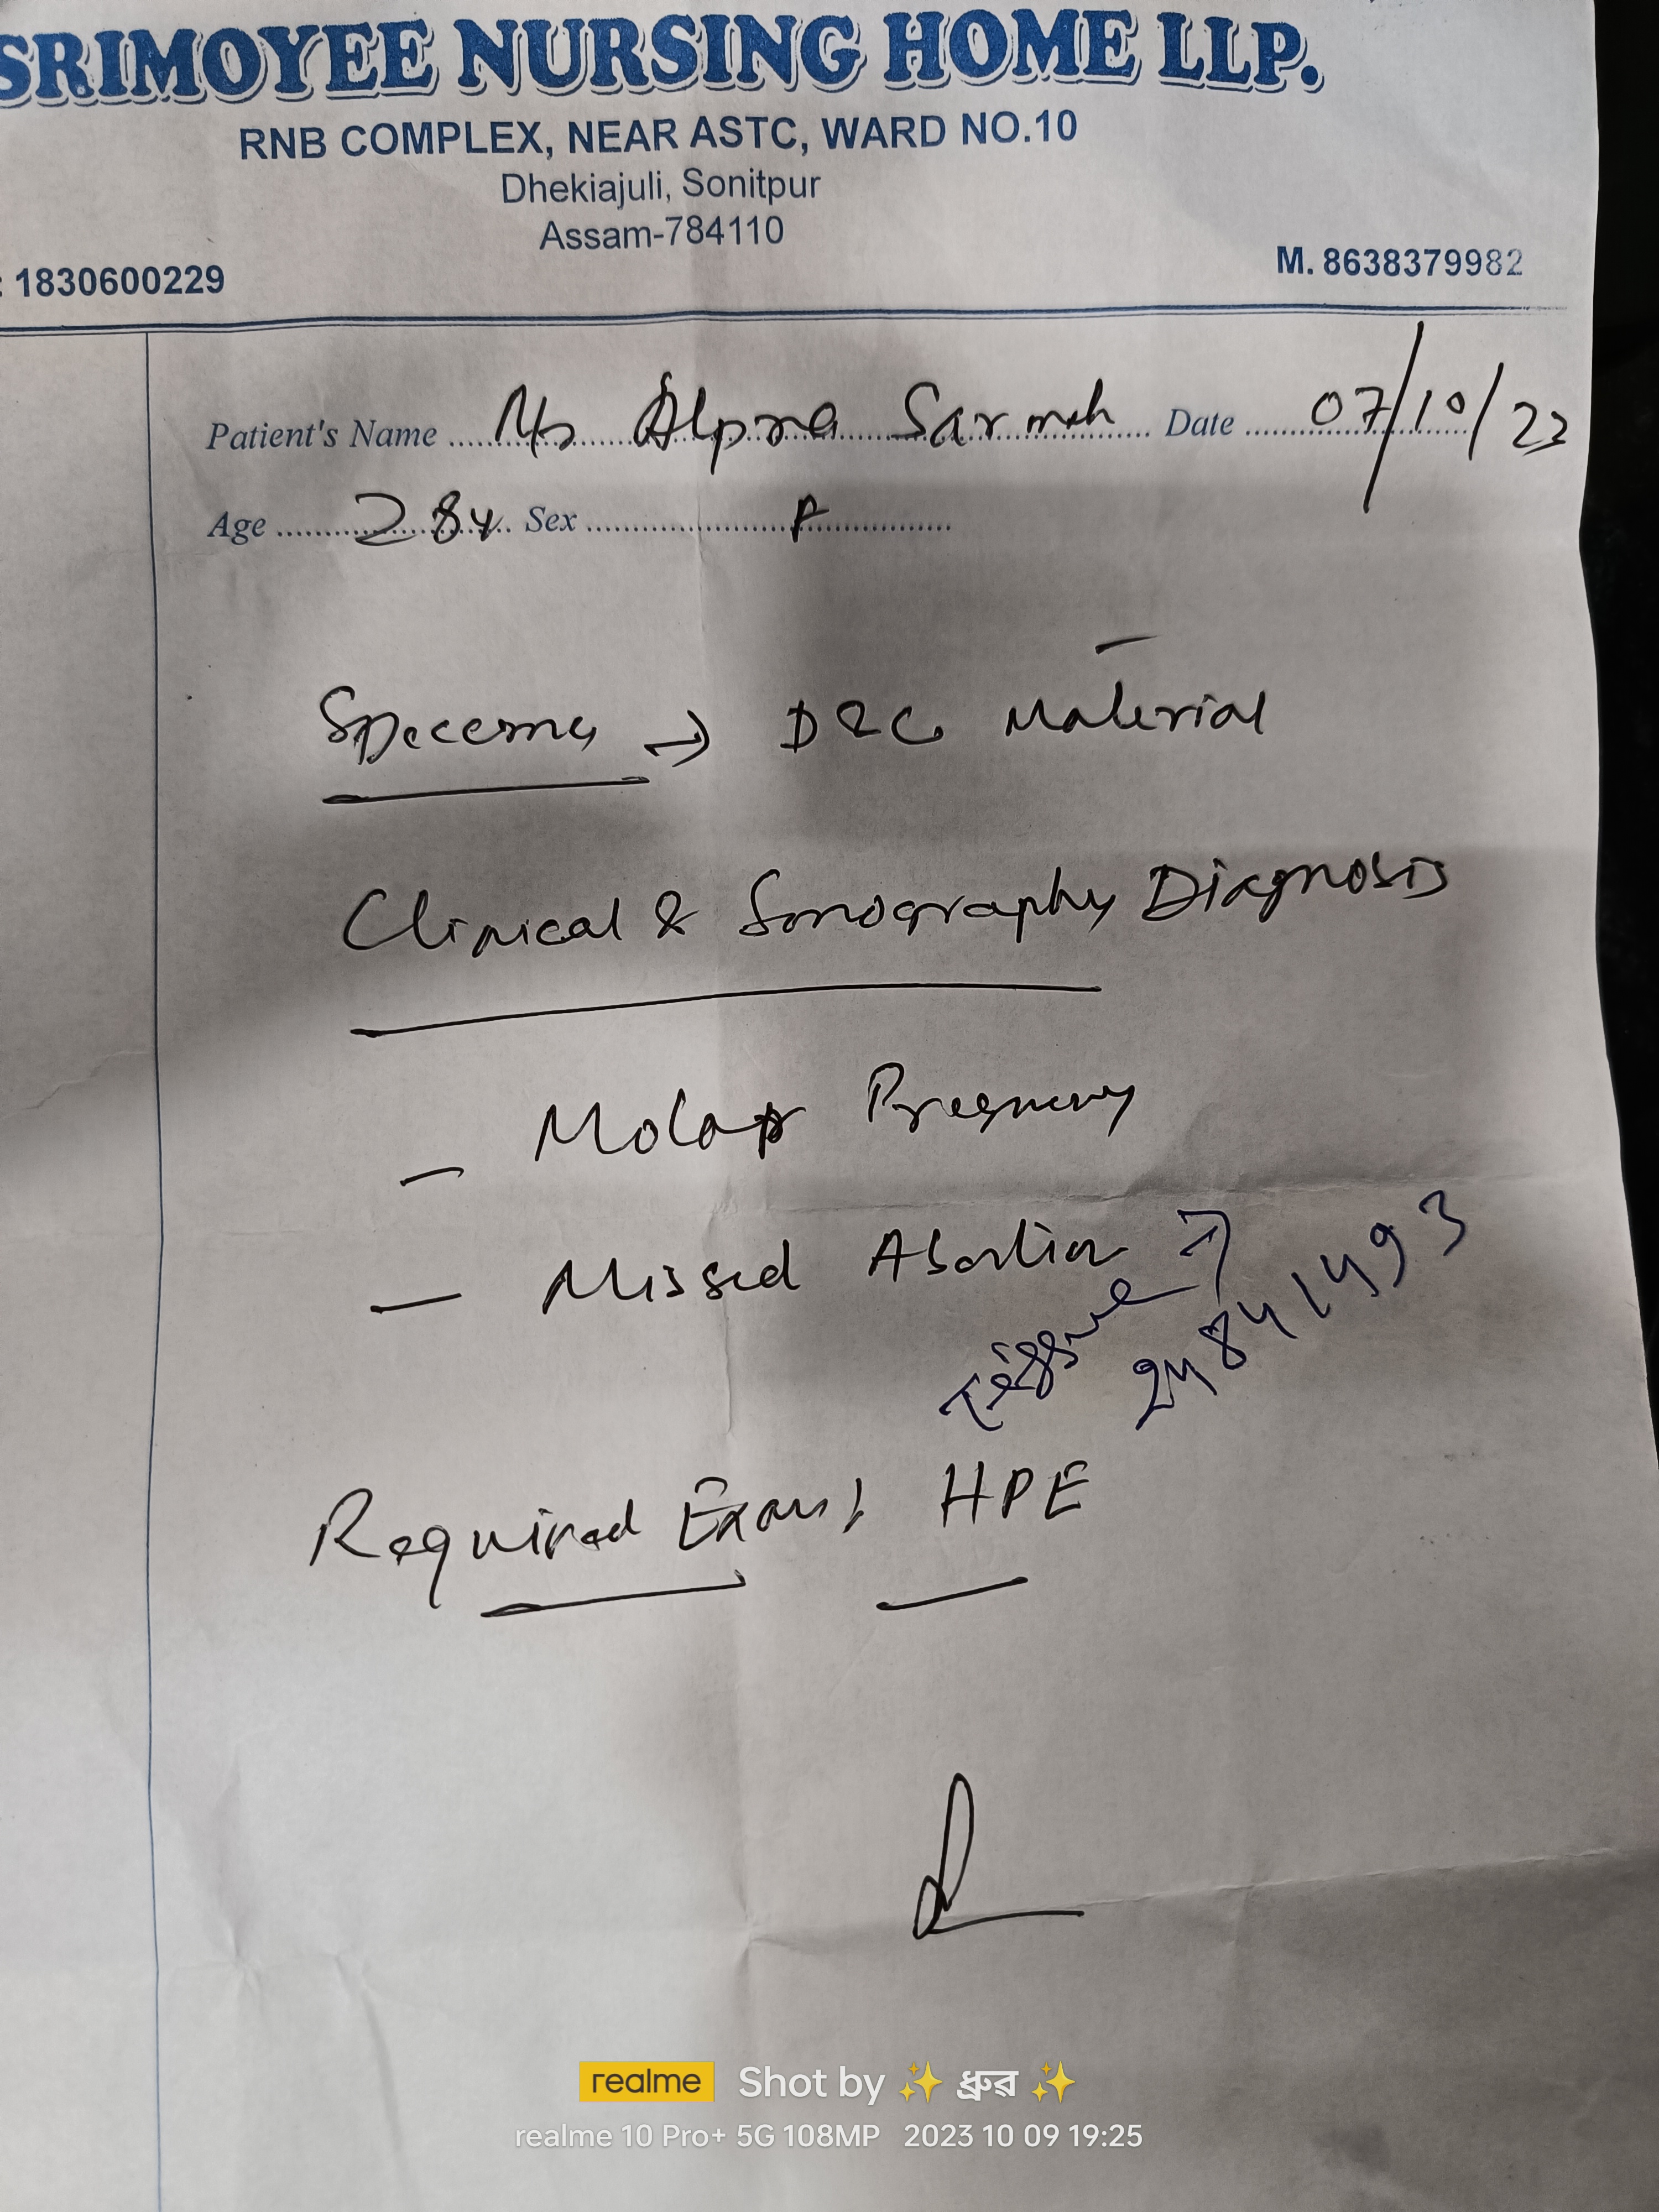 SRIMOYEE NURSING HOME LLP.
RNB COMPLEX, NEAR ASTC, WARD NO.10
Dhekiajuli, Sonitpur
Assam-784110
: 1830600229
M. 8638379982
Patient's Name Alpona Sarmah Date 07/10/23
Age 28y Sex F
→ D&C Material
Clinical & Sonography Diagnosis
- Molar Pregnancy
- Missed Abortion
Tissue
24841493
Required Exam: HPE
realme Shot by ✨ ধ্ৰুৱ ✨
realme 10 Pro+ 5G 108MP 2023 10 09 19:25